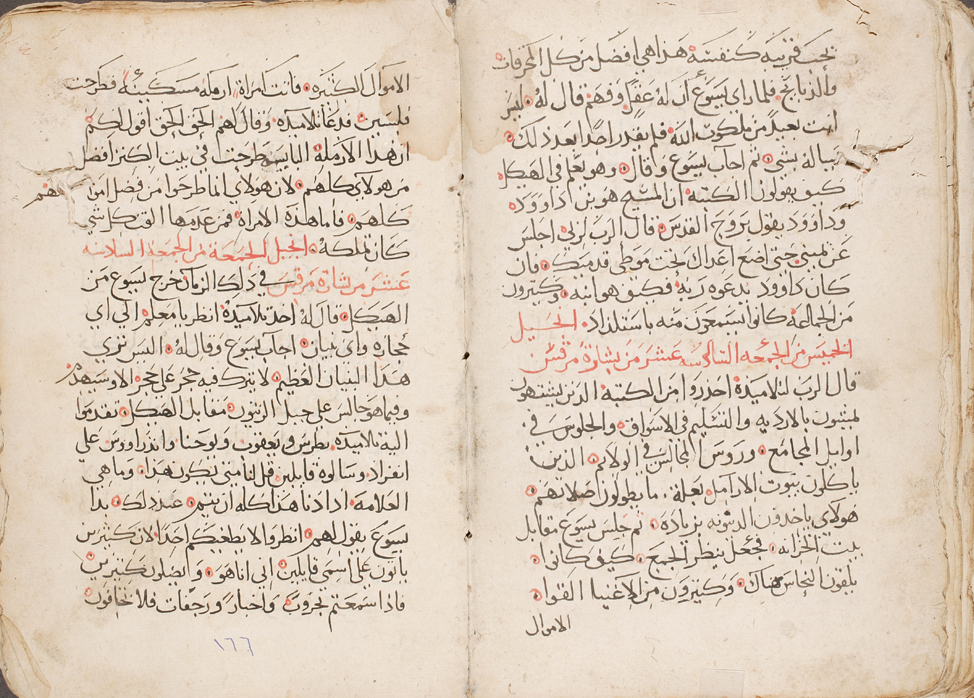 تحب قريبه كنفسه هذا هي افضل من كل المحرقات
والذبايح فلما راي يسوع ان له عقل وفهم قال له ليس
انت بعيد من ملكوت الله فلم يقدر احدا بعد ذلك
يساله بشي ثم اجاب يسوع وقال وهو يعلم في الهيكل
كيف يقولون الكتبه ان المسيح هو بن داوود
وداوود يقول بروح القدس قال الرب لربي اجلس
عن يميني حتى اضع اعداك تحت موطى قدميك فان
كان داوود يدعوه ربه فكيف هو ابنه وكثيرون
من الجماعه كانوا يسمعون منه باستلذاذ الانجيل
الخميس من الجمعه السادسه عشر من بشارة مرقس
قال الرب لتلاميذه احذروا من الكتبة الذين يشتهون
يمشون بالارديه والتسليم في الاسواق والجلوس في
اوايل المجامع وروس المجالس في الولايم الذين
ياكلون بيوت الارامل بعلة ما يطولون صلاتهم
هولاي ياخذون الدينونه بزياده ثم جلس يسوع مقابل
بيت الخزانه فجعل ينظر الجمع كيف كانوا
يلقون النحاس هناك وكثيرون من الاغنيا القوا
الاموال
الاموال الكثيره فاتت امراة ارمله مسكينه فطرحت
فلسين فدعا تلاميذه وقال لهم الحق الحق اقول لكم
ان هذا الارملة البايسه طرحت في بيت الكنز افضل
من هولاي كلهم لان هولاي انما طرحوا من فضل اموالهم
كلهم واما هذه الامراة فمن عدمها القت كل شي
كان تملكه الانجيل الجمعة من الجمعة السادسه
عشر من بشارة مرقس في ذلك الزمان خرج يسوع من
الهيكل وقال له احد تلاميذه انظر يا معلم الى اي
حجارة واي بنيان اجاب يسوع وقال له الست ترى
هذا البنيان العظيم لا يترك فيه حجر على حجر الا وسيهدم
وفيما هو جالس على جبل الزيتون مقابل الهيكل تقدموا
اليه تلاميذه بطرس ويعقوب ويوحنا واندراووس على
انفراد وسالوة قايلين قل لنا متى تكون هذا وما هي
العلامه اذا دنا هذا كله ان يتم عند ذلك بدا
يسوع يقول لهم انظروا لا يطغيكم احدا لان كثيرين
ياتون على اسمي قايلين اني انا هو ويضلون كثيرين
فاذا سمعتم بحروب واخبار ورجفات فلا تخافون
١٦٦